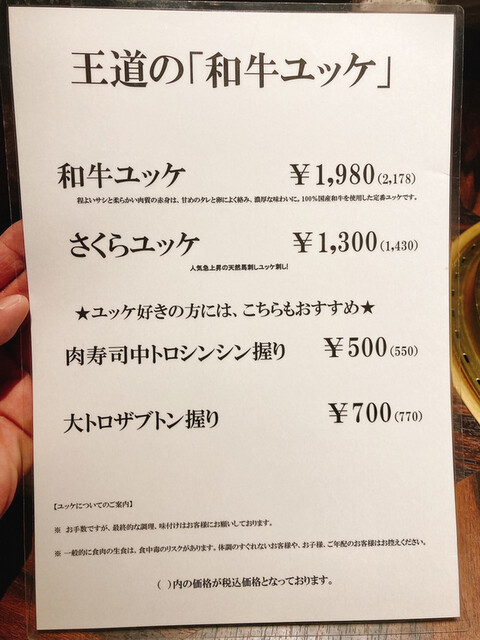 王道の「和牛ユッケ」
和牛ユッケ ￥1,980(2,178)
程よいサシと柔らかい肉質の赤身は、甘めのタレと卵によく絡み、濃厚な味わいに。100％国産和牛を使用した定番ユッケです。
さくらユッケ ￥1,300(1,430)
人気急上昇の天然馬刺しユッケ刺し!
★ユッケ好きの方には、こちらもおすすめ★
肉寿司中トロシンシン握り ￥500(550)
大トロザブトン握り ￥700(770)
【ユッケについてのご案内】
※ お手数ですが、最終的な調理、味付けはお客様にお願いしております。
※ 一般的に食肉の生食は、食中毒のリスクがあります。体調のすぐれないお客様や、お子様、ご年配のお客様はお控えください。
( )内の価格が税込価格となっております。